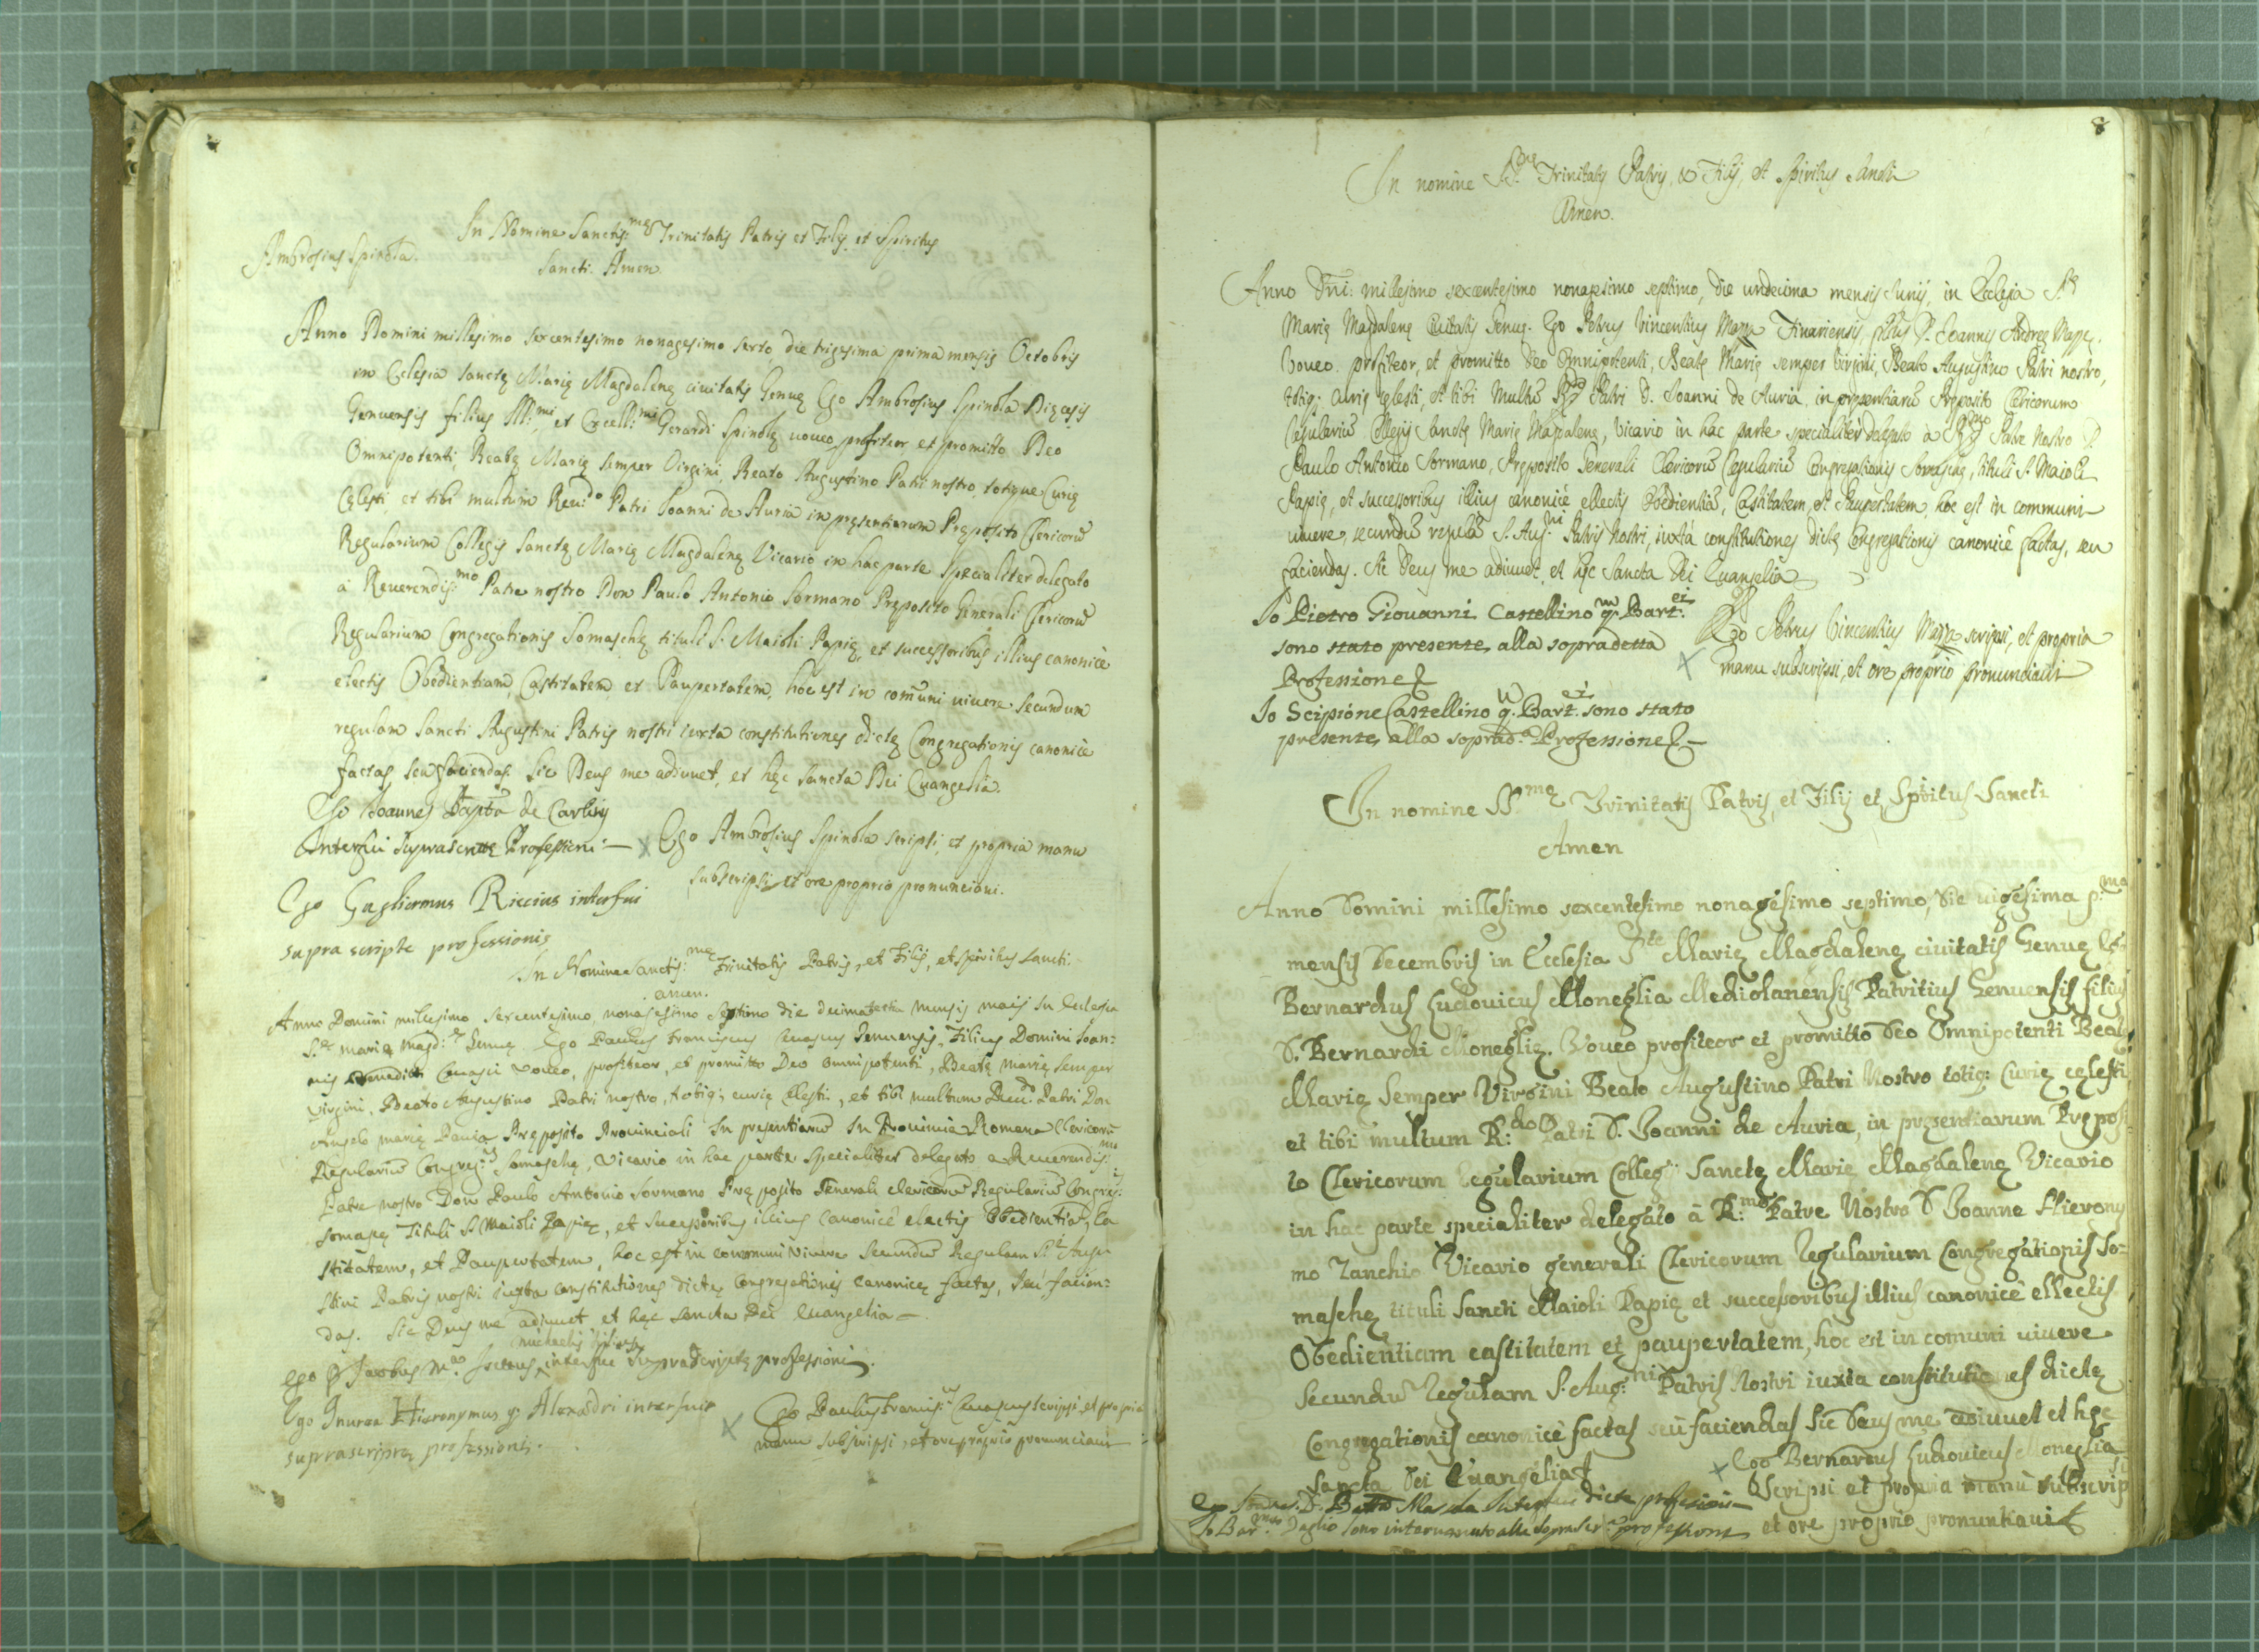 In Nomine Sanctis:mę Trinitatis Patris et Filij et Spiritus
Ambrosius Spinola.
Sancti. Amen.
Anno Domini millesimo sexcentesimo nonagesimo sexto die trigesima prima mensis Octobris
in Eclesia Sanctę Marię Magdalenę ciuitatis Genuę Ego Ambrosius Spinola Dięcesis
Genuensis filius Ill:mi et Excell:mi Gerardi Spinolę uoueo profiteor et promitto Deo
Omnipotenti, Beatę Marię semper Virgini, Beato Augustino Patri nostro, totique Curię
Cęlesti, et tibi multum Reu:do Patri Ioanni de Auria in pręsentiarum Pręposito Clericorũ
Regularium Collegij Sanctę Marię Magdalenę Vicario in hac parte specialiter delegato
à Reuerendis:mo Patre nostro Don Paulo Antonio Sormano Pręposito Generali Clericorũ
Regularium Congregationis Somaschę tituli S. Maioli Papię, et successoribus illius canonicè
electis Obedientiam, Castitatem et Paupertatem, hoc est in comũni uiuere secundum
regulam Sancti Augustini Patris nostri iuxta constitutiones dictę Congregationis canonicè
factas, seu faciendas. Sic Deus me adiuuet, et hęc Sancta Dei Euangelia.
Ego Ioannes Bapta de Carlinis
interfui suprascriptę Professioni —
Ego Ambrosius Spinola scripsi, et propria manu
subscripsi et ore proprio pronunciaui.
Ego Gugliermus Riccius interfui
supra scripte professionis
In Nomine Sanctis:mę Trinitatis Patris, et Filij, et Spiritus Sancti.
amen.
Anno Domini millesimo sexcentesimo nonagesimo septimo die decima mensis maij in Eclesia
S.tę marię magd:ę Genuę. Ego Paulus Franciscus Genuensis, Filius Domini Ioan:
nis Benedicti uoueo, profiteor, et promitto Deo omnipotenti, Beatę marię semper
virgini, Beato Augustino Patri nostro, totiq; curię cęlesti, et tibi multum Reu:do Patri Don
Angelo marię Pręposito Prouinciali in presentiarũ in Prouincia Romana Clericorũ
Regulariũ Congreg:nis Somaschę, vicario in hac parte specialiter delegato a Reuerendis:mo
Patre nostro Don Paulo Antonio Sormano Pręposito Generali clericorũ Regulariũ Congreg:nis
Tituli S. Maioli Papię, et successoribus illius canonicè electis Obedientiã, Ca
stitatem, et Paupertatem, hoc est in communi viuere secundũ Regulam S.ti Augu
stini Patris nostri iuxta constitutiones dictę Congregationis canonicę factas, seu facien:
das. Sic Deus me adiuuet et hęc sancta Dei euangelia —.
ego Jacobus interfui suprascriptę professioni.
Ego Hieronymus q: Alexadri interfui
suprascriptę professionis.
Ego Paulus scripsi, et propria
manu subscripsi, et ore proprio pronunciaui
8
In nomine SS.mę Trinitatis Patris, & Filij, et Spiritus Sancti
Amen.
Anno Dñi: millesimo sexcentesimo nonagesimo septimo, die undecima mensis Iunij, in Ecclesia S.tę
Marię Magdalenę Ciuitatis Genuę. Ego Petrus Vincentius Massa Finariensis, filius D. Ioannis Andreę Massę.
Voueo. profiteor, et promitto Deo Omnipotenti, Beatę Marię semper Virgini, Beato Augustino Patri nostro,
totiq; Curię cęlesti, et tibi Multũ R.do Patri D. Ioanni de Auria in pręsentiarũ Pręposito Clericorum
Regulariũ Collegij Sanctę Marię Magdalenę, Vicario in hac parte specialiter delegato à R.mo Patre Nostro D.
Paulo Antonio Sormano, Pręposito Generali Clericorũ Regulariũ Congregationis Somaschę, tituli S. Maioli
Papię, et successoribus illius canonicè ellectis Obedientiã, Castitatem, et Paupertatem, hoc est in communi
uiuere, secundũ regulã S. Aug:ni Patris Nostri, iuxtà constitutiones dictę Congregationis canonicè factas, seu
faciendas. Sic Deus me adiuuet, et hęc Sancta Dei Euangelia
Io Pietro Giouanni Castellino q:m Bart:ei
sono stato presente alla sopradetta
Professione
Ego Petrus Vincentius Massa scripsi, et propria
manu subscripsi, et ore proprio pronunciaui
Io Scipione Castellino q:m Bart:ei sono stato
presente alla soprad:a Professione —
In nomine SS.mę Trinitatis Patris, et Filij et Spiritus Sancti
Amen
Anno Domini millesimo sexcentesimo nonagesimo septimo, die uigesima p:ma
mensis Decembris in Ecclesia S.tę Marię Magdalenę ciuitatis Genuę Ego
Bernardus Ludouicus Moneglia Mediolanensis Patritius Genuensis filius
D. Bernardi Moneglię. Voueo profiteor et promitto Deo Omnipotenti Beatę
Marię Semper Virgini Beato Augustino Patri Nostro totiq: Curię cęlesti
et tibi multum R:do Patri D. Ioanni de Auria, in pręsentiarum Pręposi
to Clericorum Regularium Collegij Sanctę Marię Magdalenę Vicario
in hac parte specialiter delegato à R:mo Patre Nostro D Ioanne Hierony
mo Zanchio Vicario generali Clericorum Regularium Congregationis So=
maschę tituli Sancti Maioli Papię et successoribus illius canonicè ellectis
Obedientiam castitatem et paupertatem, hoc est in comuni uiuere
Secundũ Regulam S. Aug:ni Patris Nostri iuxta constitutiones dictę
Congregationis canonicè factas seù faciendas Sic Deus me adiuuet et hęc
Sancta Dei Euangelia
Ego Bernardus Ludouicus Moneglia
Scripsi et propria manù subscripsi
et ore proprio pronuntiaui
Ego dicte professioni
Io Bar:meo sono interuenuto alla soprascr:a professione